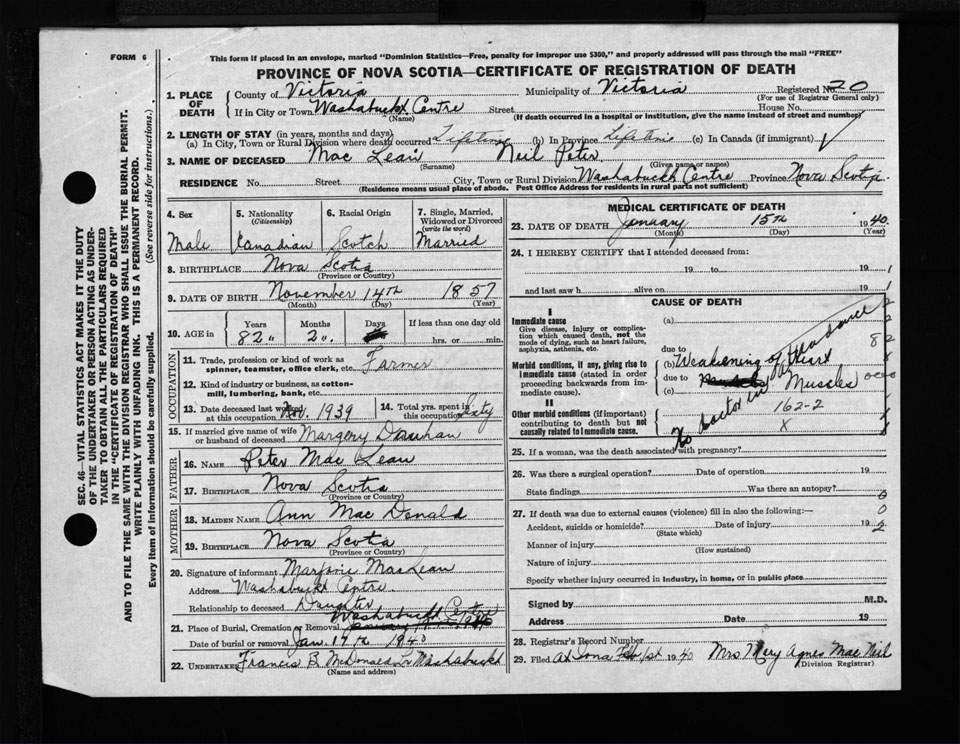 FORM 6
This form if placed in an envelope, marked "Dominion Statistics—Free, penalty for improper use $300," and properly addressed will pass through the mail "FREE"
PROVINCE OF NOVA SCOTIA—CERTIFICATE OF REGISTRATION OF DEATH
1. PLACE OF DEATH County of Victoria Municipality of Victoria Registered No. 20
(For use of Registrar General only)
If in City or Town Washabuckt Centre Street House No.
(Name) (If death occurred in a hospital or institution, give the name instead of street and number)
2. LENGTH OF STAY (in years, months and days)
(a) In City, Town or Rural Division where death occurred Lifetime (b) In Province Lifetime (c) In Canada (if immigrant)
3. NAME OF DECEASED Mac Lean Neil Peter
(Surname) (Given name or names)
RESIDENCE No. Street City, Town or Rural Division Washabuckt Centre Province Nova Scotia
(Residence means usual place of abode. Post Office Address for residents in rural parts not sufficient)
4. Sex 5. Nationality (Citizenship) 6. Racial Origin 7. Single, Married, Widowed or Divorced (write the word)
Male Canadian Scotch Married
8. BIRTHPLACE Nova Scotia
(Province or Country)
9. DATE OF BIRTH November 14th 1857
(Month) (Day) (Year)
10. AGE in Years Months Days If less than one day old
82 " 2 " hrs. or min.
OCCUPATION
11. Trade, profession or kind of work as spinner, teamster, office clerk, etc. Farmer
12. Kind of industry or business, as cotton-mill, lumbering, bank, etc.
13. Date deceased last worked at this occupation Nov. 1939 14. Total yrs. spent in this occupation Sixty
15. If married give name of wife or husband of deceased Margery
FATHER
16. NAME Peter Mac Lean
17. BIRTHPLACE Nova Scotia
(Province or Country)
MOTHER
18. MAIDEN NAME Ann Mac Donald
19. BIRTHPLACE Nova Scotia
(Province or Country)
20. Signature of informant Marjorie MacLean
Address Washabuckt Centre
Relationship to deceased Daughter
21. Place of Burial, Cremation or Removal Washabuckt Centre
Date of burial or removal Jan. 17th 1940
22. UNDERTAKER Francis B. McDonald Washabuckt
(Name and address)
MEDICAL CERTIFICATE OF DEATH
23. DATE OF DEATH January 15th 1940
(Month) (Day) (Year)
24. I HEREBY CERTIFY that I attended deceased from:
19 to 19
and last saw h alive on 19
CAUSE OF DEATH
I
Immediate cause (a)
Give disease, injury or complication which caused death, not the mode of dying, such as heart failure, asphyxia, asthenia, etc.
due to
(b) Weakening of Heart
Morbid conditions, if any, giving rise to immediate cause (stated in order proceeding backwards from immediate).
due to
(c) Muscles
II
Other morbid conditions (if important) contributing to death but not causally related to immediate cause.
No doctor in
162-2
X
25. If a woman, was the death associated with pregnancy?
26. Was there a surgical operation? Date of operation 19
State findings Was there an autopsy?
27. If death was due to external causes (violence) fill in also the following:—
Accident, suicide or homicide? Date of injury 19
(State which)
Manner of injury
(How sustained)
Nature of injury
Specify whether injury occurred in industry, in home, or in public place
Signed by M.D.
Address Date 19
28. Registrar's Record Number
29. Filed at Iona Feb 1st 1940 Mrs Mary Agnes Mac Neil
(Division Registrar)
SEC. 46—VITAL STATISTICS ACT MAKES IT THE DUTY
OF THE UNDERTAKER OR PERSON ACTING AS UNDER-
TAKER TO OBTAIN ALL THE PARTICULARS REQUIRED
IN THE "CERTIFICATE OF REGISTRATION OF DEATH"
AND TO FILE THE SAME WITH THE DIVISION REGISTRAR WHO SHALL ISSUE THE BURIAL PERMIT.
WRITE PLAINLY WITH UNFADING INK. THIS IS A PERMANENT RECORD.
Every item of information should be carefully supplied. (See reverse side for instructions.)